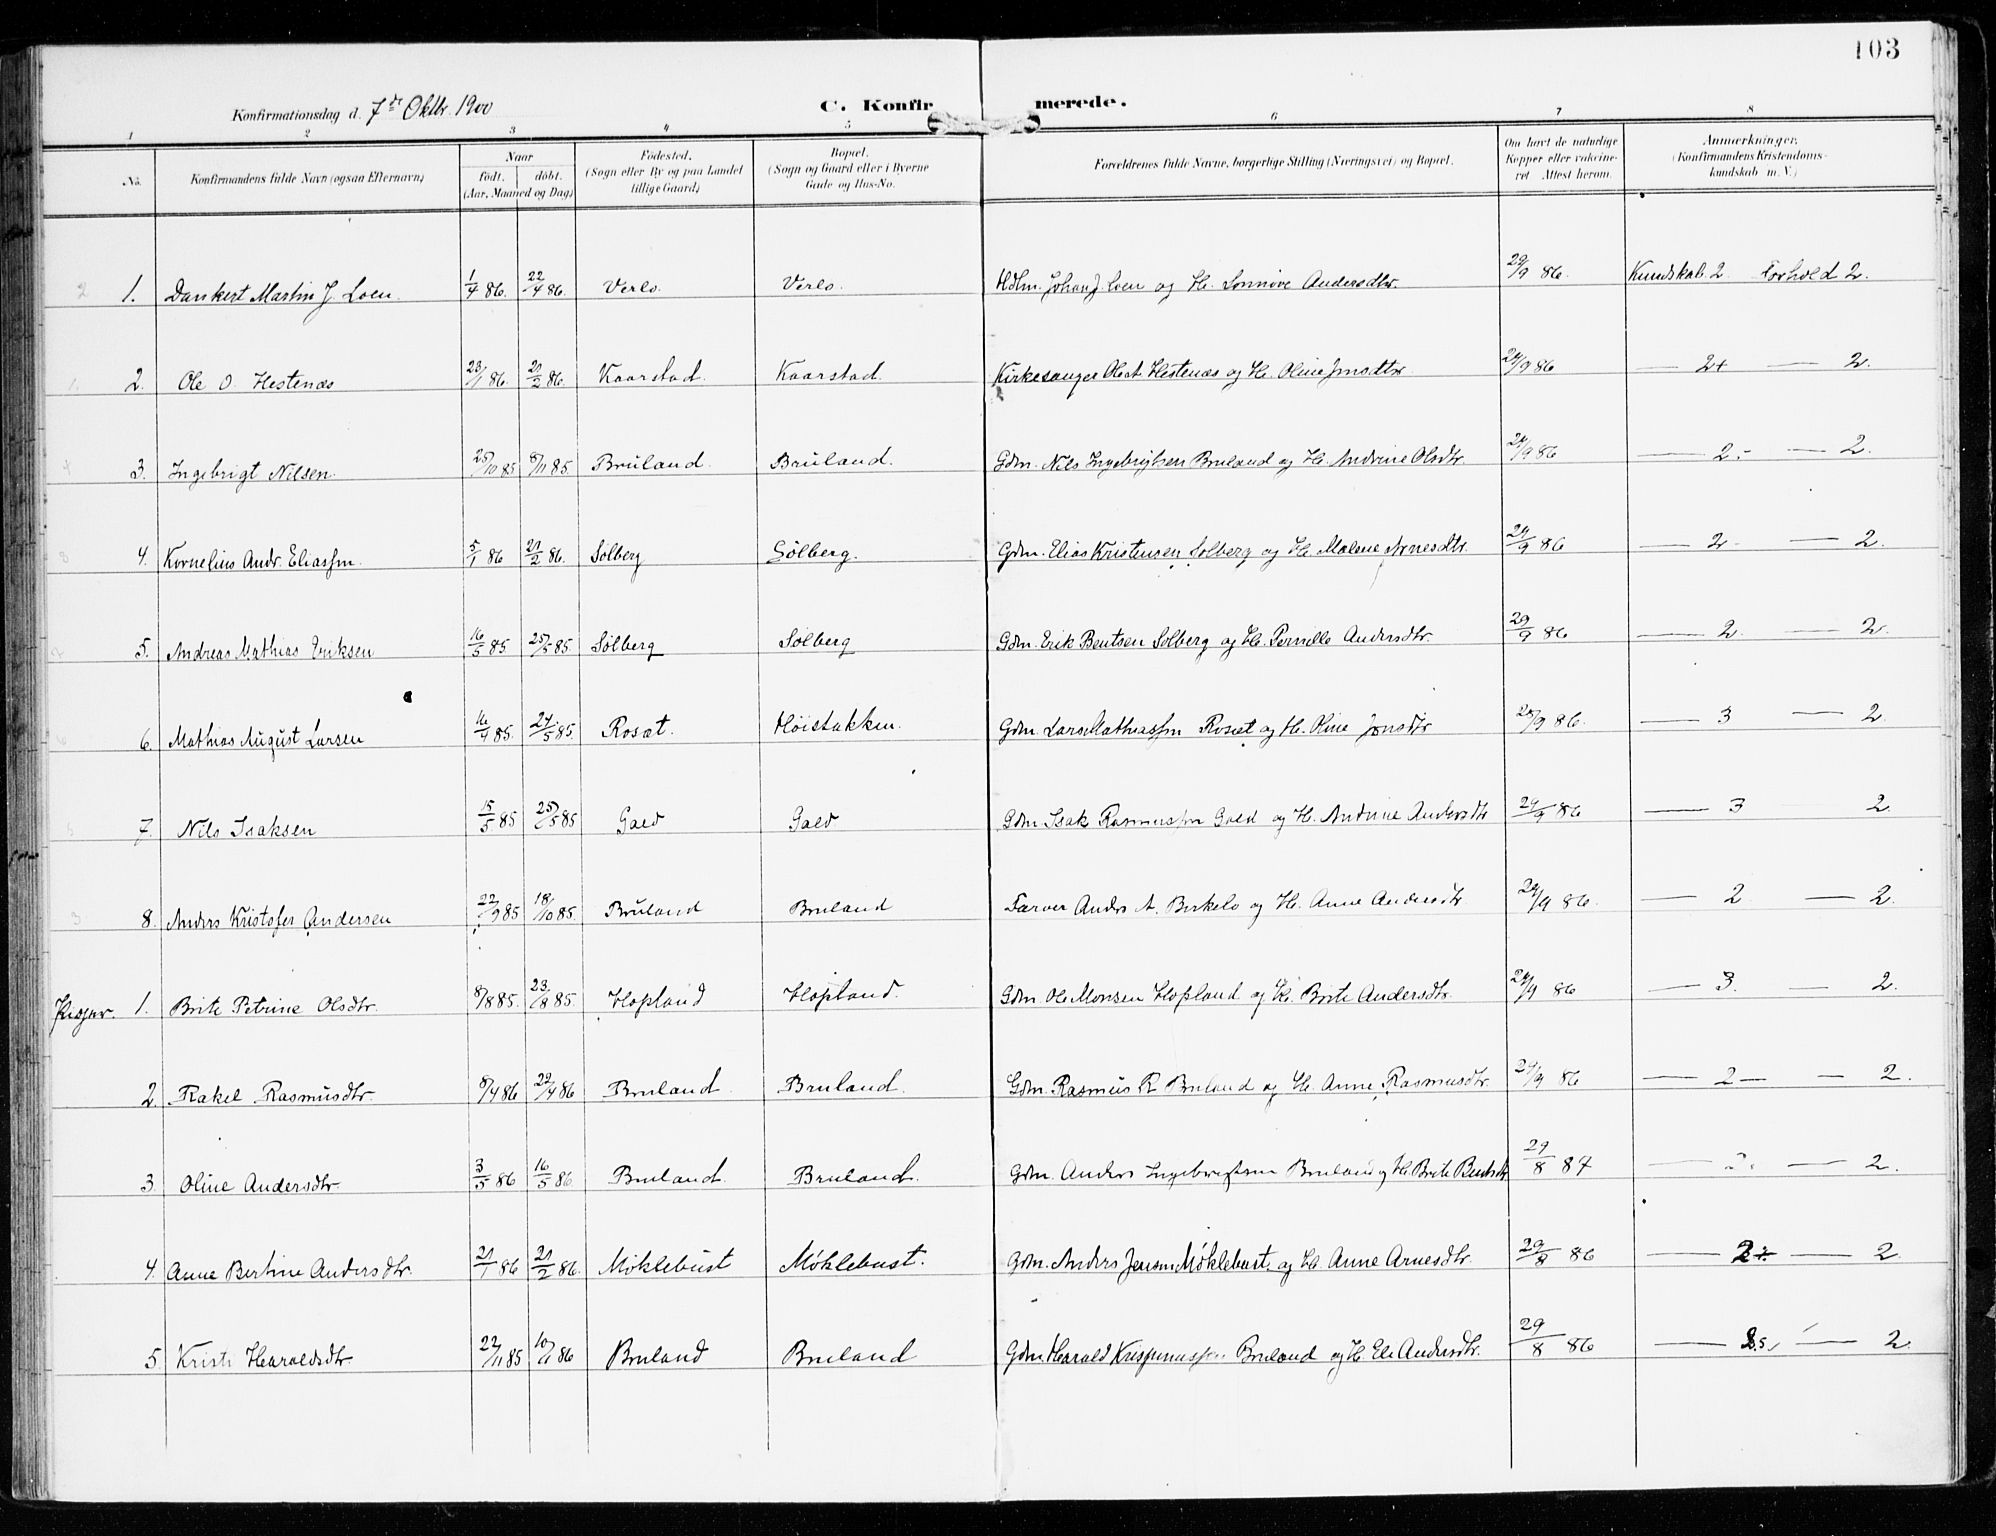 103
Konfirmationsdag d. 7de Oktbr. 1900
C. Konfirmerede.
1 2 3 4 5 6 7 8
No. Konfirmandens fulde Navn (ogsaa Efternavn) Naar født. døbt. (Aar, Maaned og Dag) Fødested. (Sogn eller By og paa Landet tillige Gaard) Bopæl. (Sogn og Gaard eller i Byerne Gade og Hus-No. Forældrenes fulde Navne, borgerlige Stilling (Næringsvei) og Bopæl. Om havt de naturlige Kopper eller vaccineret Attest herom. Anmærkninger. (Konfirmandens Kristendomskundskab m. V.)
1. Dankert Martin J. Loen. 1/4 86. 22/4 86. Verlo. Verlo. Hdm. Johan J. Loen og H. Sønnøve Andersdtr. 29/9 86. Kundskab 2 Forhold 2.
2. Ole O. Hestenæs 23/1 86. 21/2 86. Kaarstad. Kaarstad. Kirkesanger Ole A. Hestenæs og H. Oline Jensdtr 29/9 86 — 2+ — 2.
3. Ingebrigt Nilsen. 25/10 85 8/11 85. Bruland. Bruland. Gdm. Nils Ingebrigtsen Bruland og H. Andrine Olsdtr. 29/9 86 — 2.- — 2.
4. Kornelius Andr. Eliassen. 5/1 86 21/2 86. Solberg Solberg. Gdm. Elias Kristensen Solberg og H. Malene Arnesdtr. 29/9 86 — 2- — 2.
5. Andreas Mathias Eriksen 16/5 85 25/5 85. Solberg Solberg Gdm. Erik Bentsen Solberg og H. Pernille Andersdtr. 29/9 86 — 2. — 2.
6. Mathias August Larsen 16/4 85. 24/5 85. Rosæt. Høistakken. Gdm. Lars Mathiassen Rosæt og H. Oline Jonsdtr 28/9 86. — 3 — 2.
7. Nils Isaksen 15/5 85 25/5 85 Gald Gald Gdm Isak Rasmussen Gald og H. Andrine Andersdtr 29/9 86 — 3 2.
8. Anders Kristofer Andersen 22/9 85 18/10 85. Bruland Bruland Farver Anders A. Birkelo og H. Anne Andersdtr 29/9 86. — 2 — 2.
Piger. 1. Brite Petrine Olsdtr. 8/8 85. 23/8 85. Hopland Hopland. Gdm Ole Monsen Hopland og H. Brite Andersdtr. 29/9 86 — 3. — 2.
2. Rakel Rasmusdtr. 8/4 86 22/4 86 Bruland. Bruland. Gdm. Rasmus R Bruland og H. Anne Rasmusdtr. 29/9 86 — 2 — 2.
3. Oline Andersdtr. 3/5 86 16/5 86 Bruland. Bruland. Gdm. Anders Ingebrigtsen Bruland og H. Brite Bentsdtr 29/8 87 — 2. — 2.
4. Anne Bertine Andersdtr. 21/1 86 21/2 86. Møklebust Møklebust. Gdm. Anders Jensen Møklebust. og H. Anne Arnesdtr. 29/8 86 — 2+ — 2.
5. Kristi Haraldsdtr 22/11 85 10/1 86 Bruland Bruland Gdm Harald Bruland og H. Eli Andersdtr. 29/8 86 — 2.5 — 2.